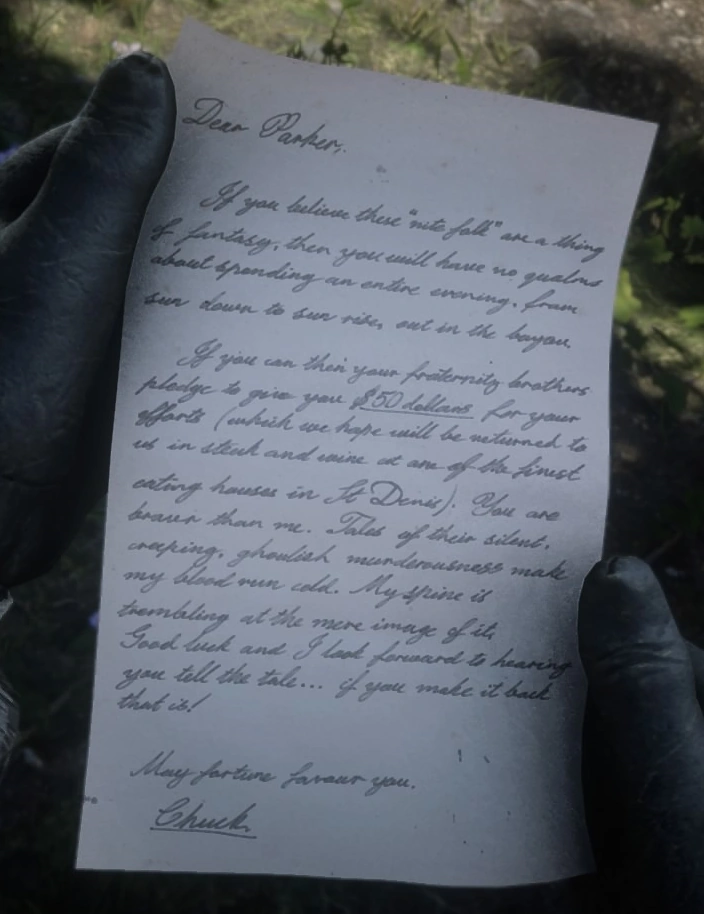 Dear Parker,
If you believe these "nite folk" are a thing
of fantasy, then you will have no qualms
about spending an entire evening, from
sun down to sun rise, out in the bayou.
If you can then your fraternity brothers
pledge to give you $50 dollars for your
efforts (which we hope will be returned to
us in steak and wine at one of the finest
eating houses in St Denis). You are
braver than me. Tales of their silent,
creeping, ghoulish murderousness make
my blood run cold. My spine is
trembling at the mere image of it.
Good luck and I look forward to hearing
you tell the tale... if you make it back
that is!
May fortune favour you.
Chuck.